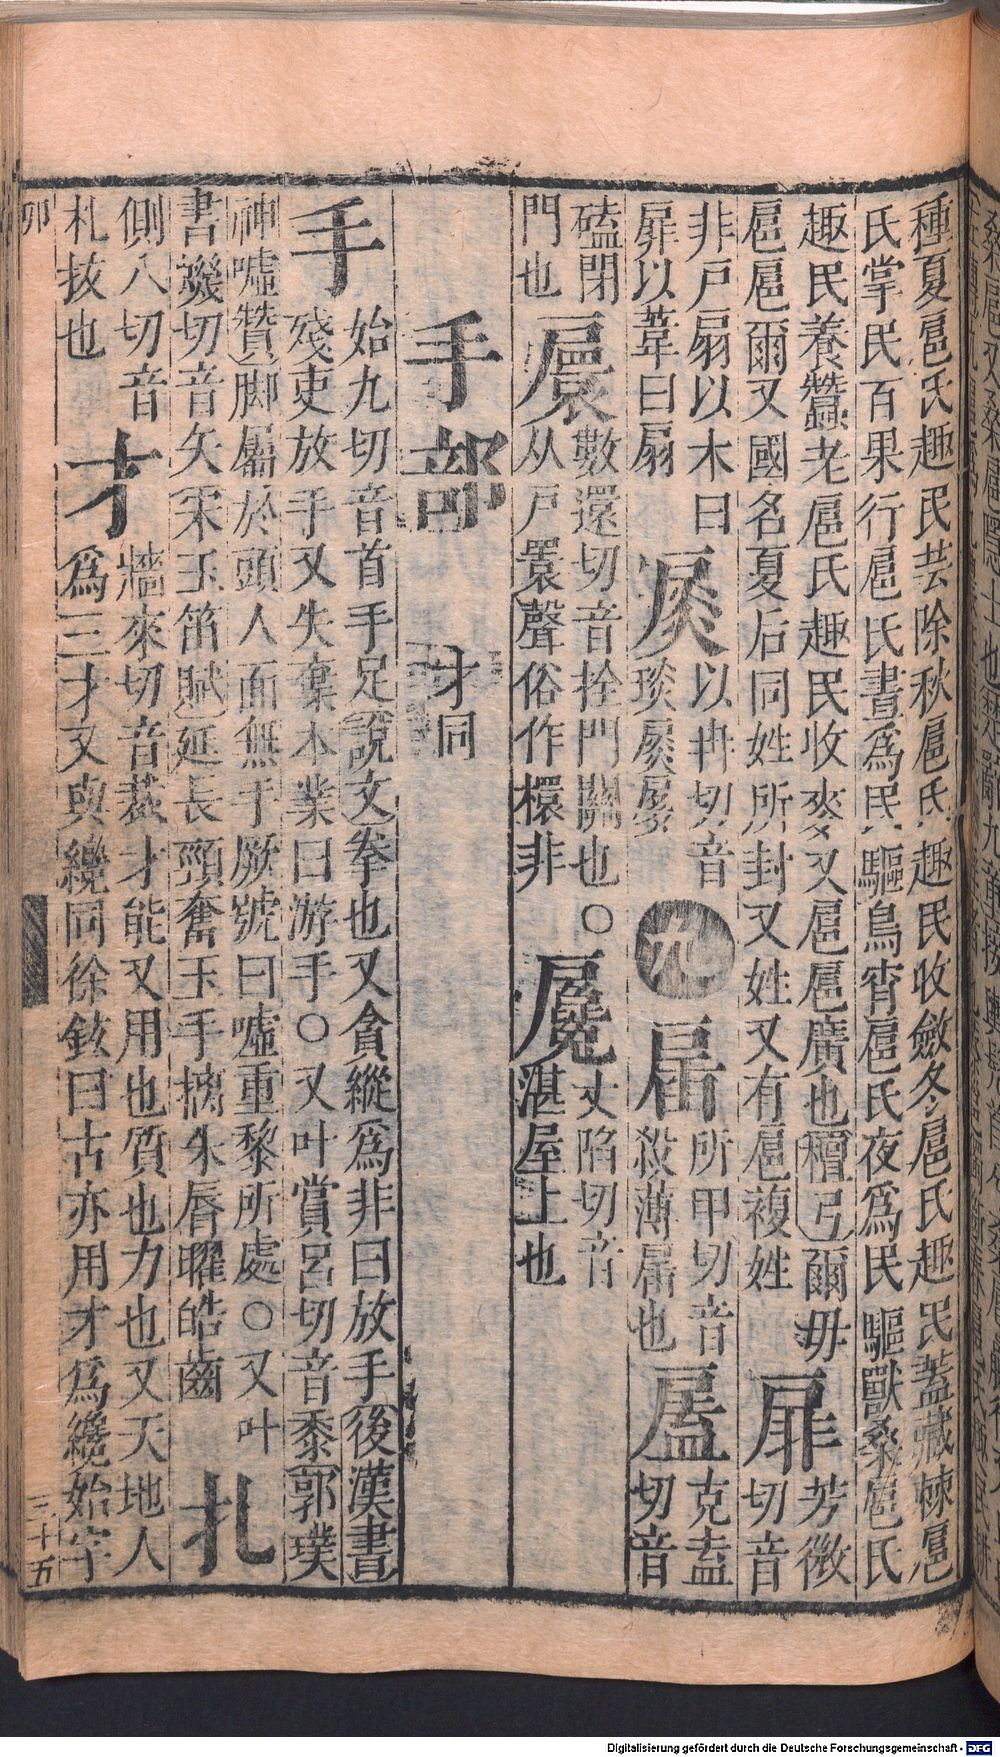 種夏扈氏趣民芸除秋扈氏趣民收斂冬扈氏趣民蓋藏棘扈
氏掌民百果行扈氏晝為民驅鳥宵扈氏夜為民驅獸桑扈氏
趣民養蠶老扈氏趣民收麥又扈扈廣也檀弓爾毋
扈扈爾又國名夏后同姓所封又姓又有扈複姓
扉
芳微
切音
非戶扇以木曰
扉以葦曰扇
扊
以冉切音
琰扊扅
九
㞚
所甲切音
殺薄㞚也
㞔
克盍
切音
磕閉
門也
㞙
數還切音拴門關也○
从戶睘聲俗作檈非
丈陷切音
湛屋上也
手部
才同
手
始九切音首手足說文拳也又貪縱為非曰放手後漢書
殘吏放手又失棄本業曰游手○又叶賞呂切音黍郭璞
神噓贊脚屬於頭人面無手厥號曰噓重黎所處○又叶
書幾切音矢宋玉笛賦延長頸奮玉手摛朱唇曜皓齒
扎
側八切音
札拔也
才
牆來切音裁才能又用也質也力也又天地人
為三才又與纔同徐鉉曰古亦用才為纔始字
卯
三十五
Digitalisierung gefördert durch die Deutsche Forschungsgemeinschaft - DFG